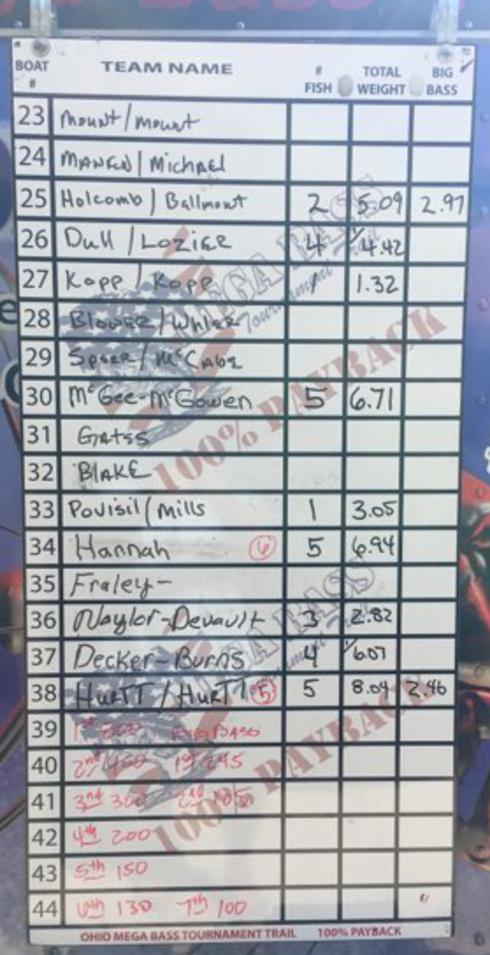 BOAT # TEAM NAME # FISH TOTAL WEIGHT BIG BASS
23 Mount/Mount
24 Manen/Michael
25 Holcomb/Ballmont 2 5.09 2.97
26 Dull/Lozier 4 4.42
27 Kopp/Kopp 1 1.32
28 Blower/
29 Speer/McCabe
30 McGee-McGowen 5 6.71
31 Gates
32 Blake
33 Povisil/Mills 1 3.05
34 Hannah 6 5 6.94
35 Fraley-
36 Naylor-Devault 3 2.82
37 Decker-Burns 4 6.07
38 Hurtt/Hurtt 5 5 8.04 2.46
39 1st BIG BASS
40 2nd 400 1st 245
41 3rd 300 2nd 105
42 4th 200
43 5th 150
44 6th 130 7th 100
MEGA BASS
Tournament Trail
100% PAYBACK
MEGA BASS
100% PAYBACK
OHIO MEGA BASS TOURNAMENT TRAIL 100% PAYBACK